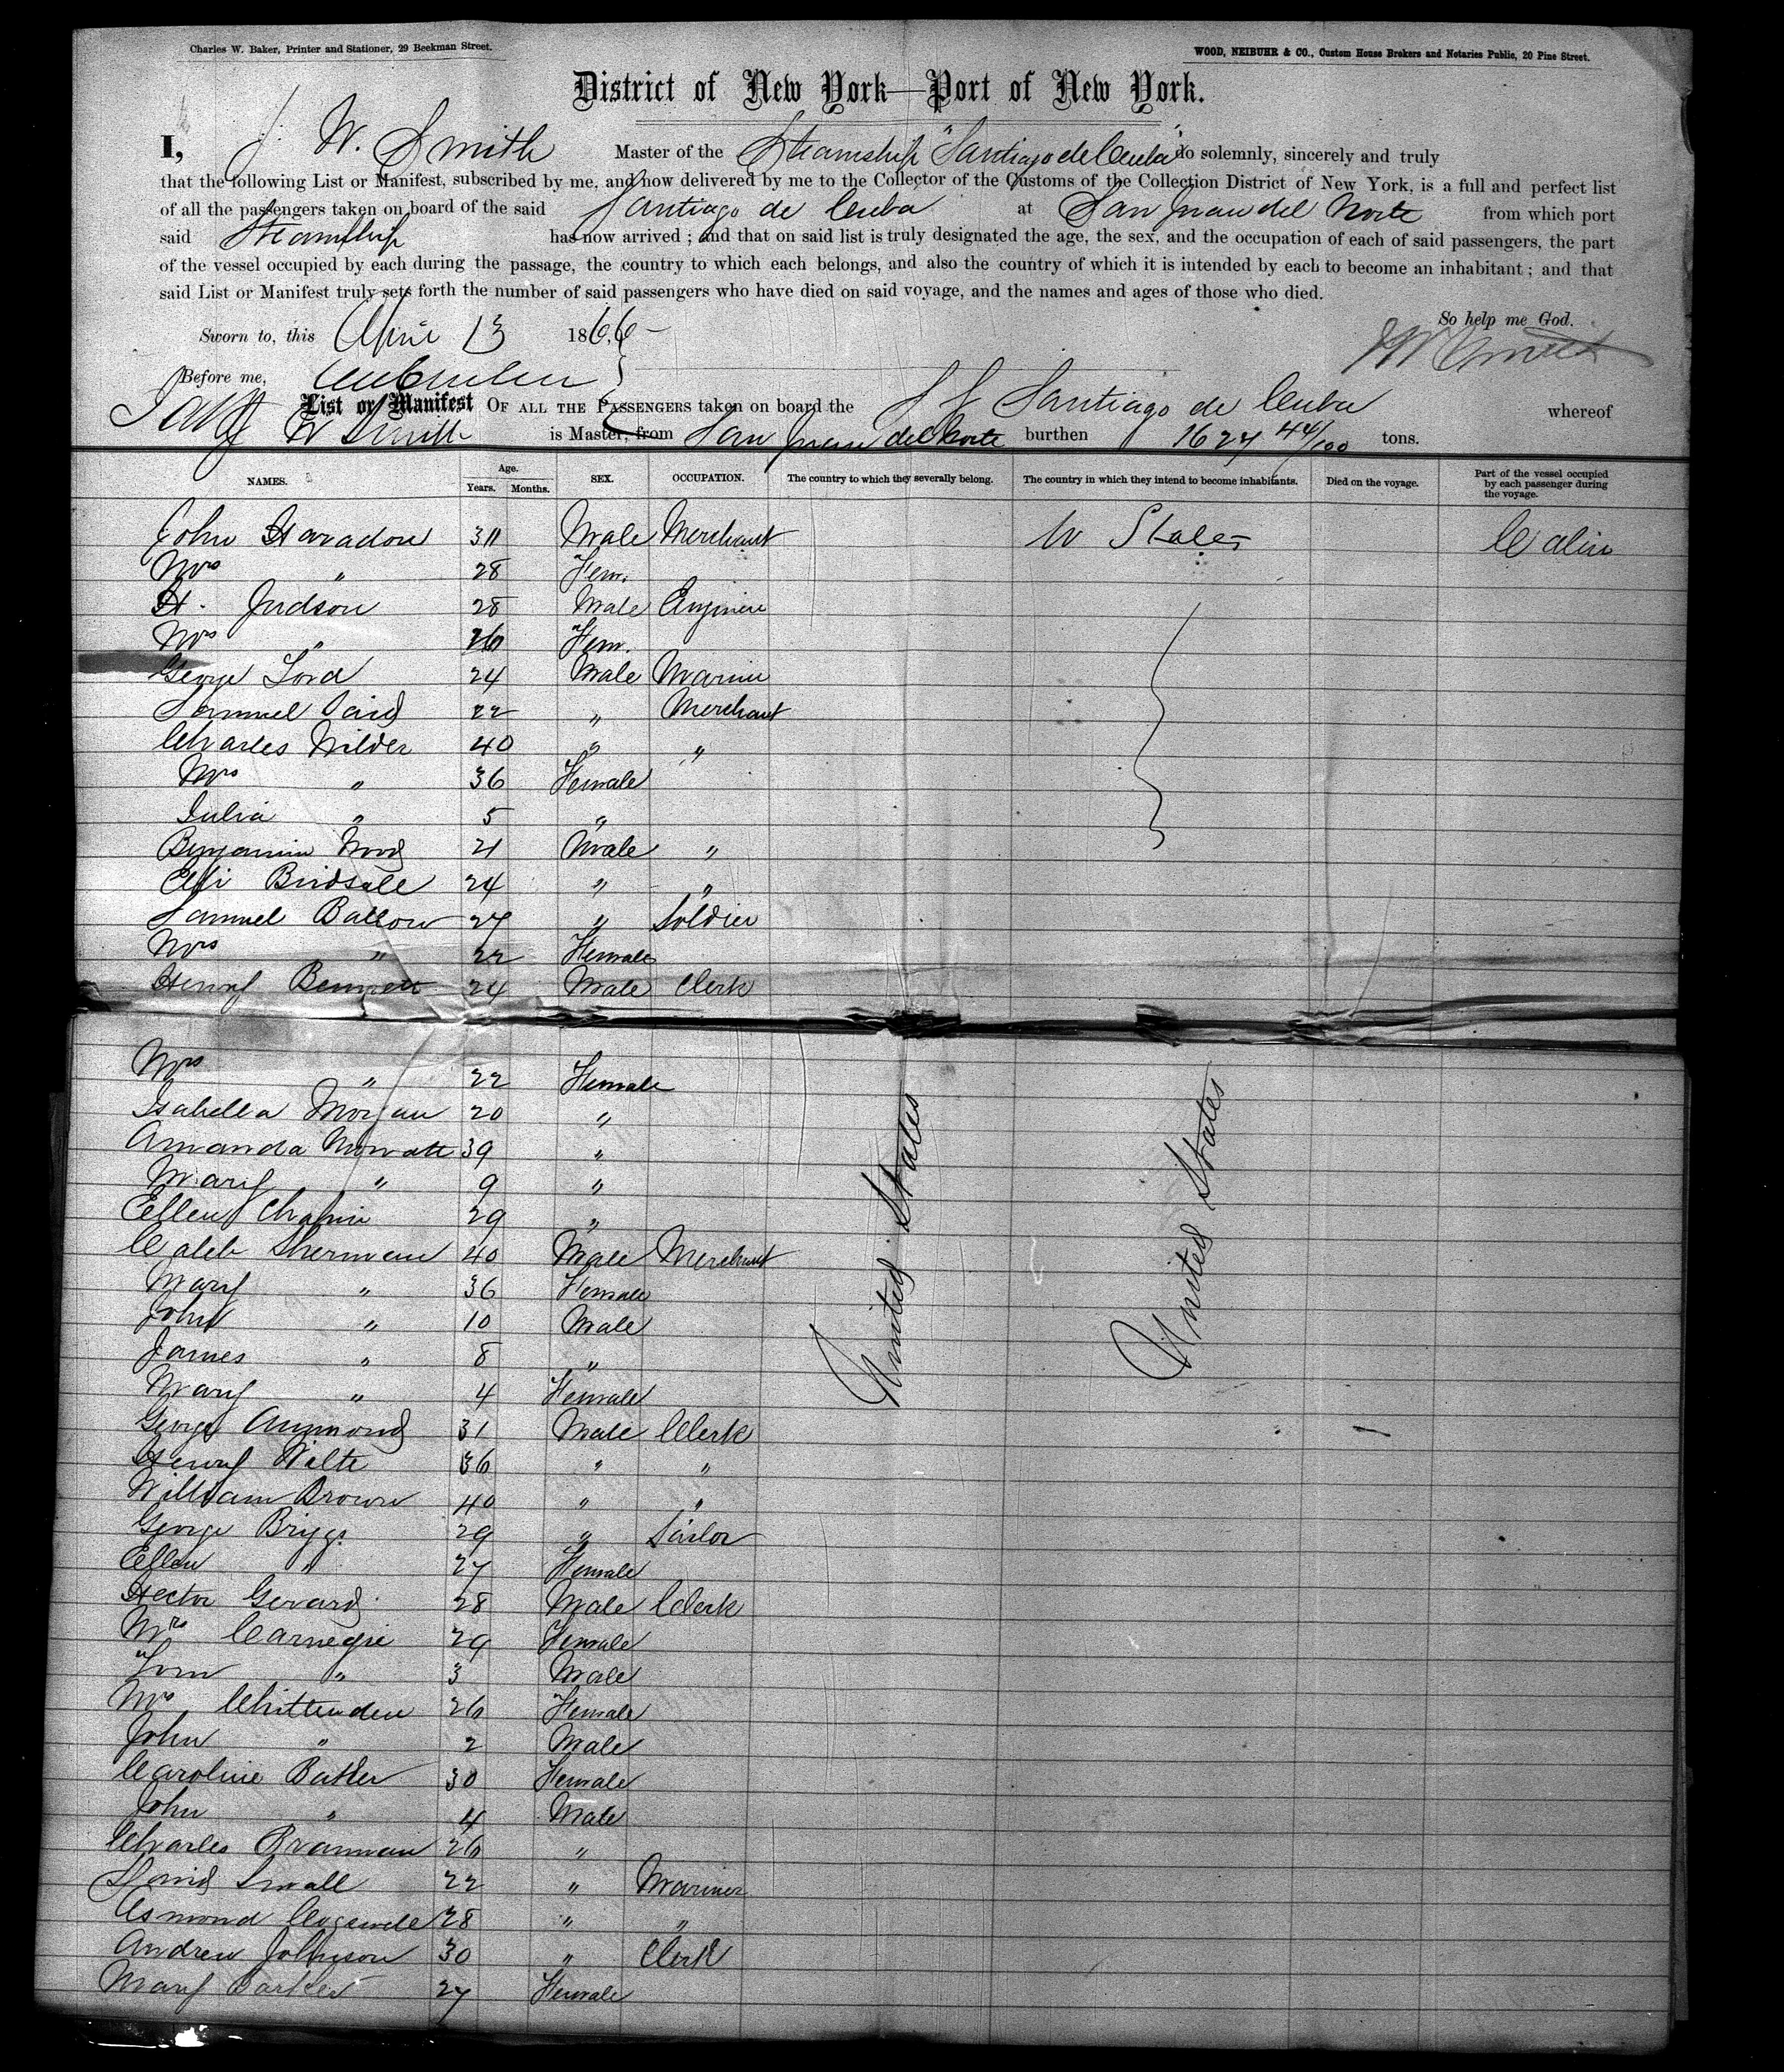 Charles W. Baker, Printer and Stationer, 29 Beekman Street.
WOOD, NEIBUHR & CO., Custom House Brokers and Notaries Public, 20 Pine Street.
District of New York—Port of New York.
I, J. W. Smith Master of the Steamship "Santiago de Cuba" do solemnly, sincerely and truly
that the following List or Manifest, subscribed by me, and now delivered by me to the Collector of the Customs of the Collection District of New York, is a full and perfect list
of all the passengers taken on board of the said Santiago de Cuba at San Juan del Norte from which port
said Steamship has now arrived; and that on said list is truly designated the age, the sex, and the occupation of each of said passengers, the part
of the vessel occupied by each during the passage, the country to which each belongs, and also the country of which it is intended by each to become an inhabitant; and that
said List or Manifest truly sets forth the number of said passengers who have died on said voyage, and the names and ages of those who died.
So help me God.
Sworn to, this April 13 1866
J W Smith
Before me,
List or Manifest OF ALL THE PASSENGERS taken on board the S S Santiago de Cuba whereof
W Smith is Master, from San Juan del Norte burthen 1627 44/100 tons.
NAMES. Age. Years. Months. SEX. OCCUPATION. The country to which they severally belong. The country in which they intend to become inhabitants. Died on the voyage. Part of the vessel occupied by each passenger during the voyage.
John Haradon 30 Male Merchant U States Cabin
Mrs " 28 Fem.
H. Judson 28 Male Engineer
Mrs " 26 Fem.
George Lord 24 Male Marine
Samuel 22 " Merchant
Charles Wilder 40 " "
Mrs " 36 Female
Julia " 5 "
Benjamin Wood 21 Male "
Eli Birdsall 24 " "
Samuel Ballow 27 " Soldier
Mrs " 22 Female
Henry Bennett 24 Male Clerk
Mrs " 22 Female
Isabella Morgan 20 "
Amanda Mowatt 39 "
Mary " 9 "
Ellen Chapin 29 "
Caleb Sherman 40 Male Merchant
Mary " 36 Female
John " 10 Male
James " 8 "
Mary " 4 Female
United States
United States
George Aymond 31 Male Clerk
Henry Wilte 36 " "
William Brown 40 " "
George Briggs 29 " Sailor
Ellen " 27 Female
Hector Gerard 28 Male Clerk
Mrs Carnegie 29 Female
Tom " 3 Male
Mrs Chittenden 26 Female
John " 2 Male
Caroline Butler 30 Female
John " 4 Male
Charles Brannan 26 "
David Small 22 " Mariner
Osmond Cogswell 28 " "
Andrew Johnson 30 " Clerk
Mary Barker 27 Female